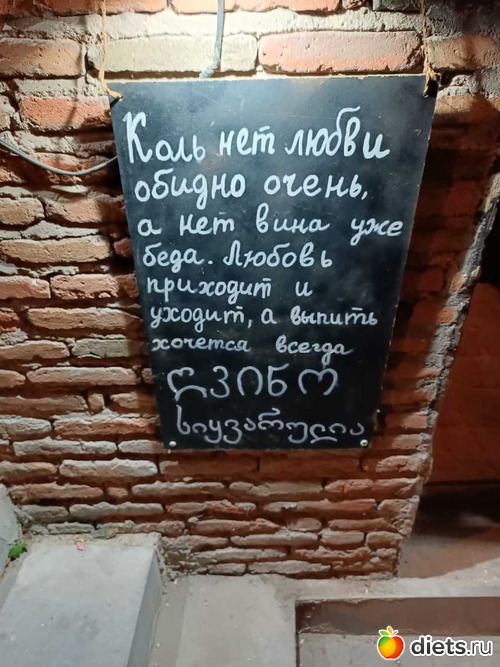 Коль нет любви
обидно очень,
а нет вина уже
беда. Любовь
приходит и
уходит, а выпить
хочется всегда
ღვინო
სიყვარულია
diets.ru